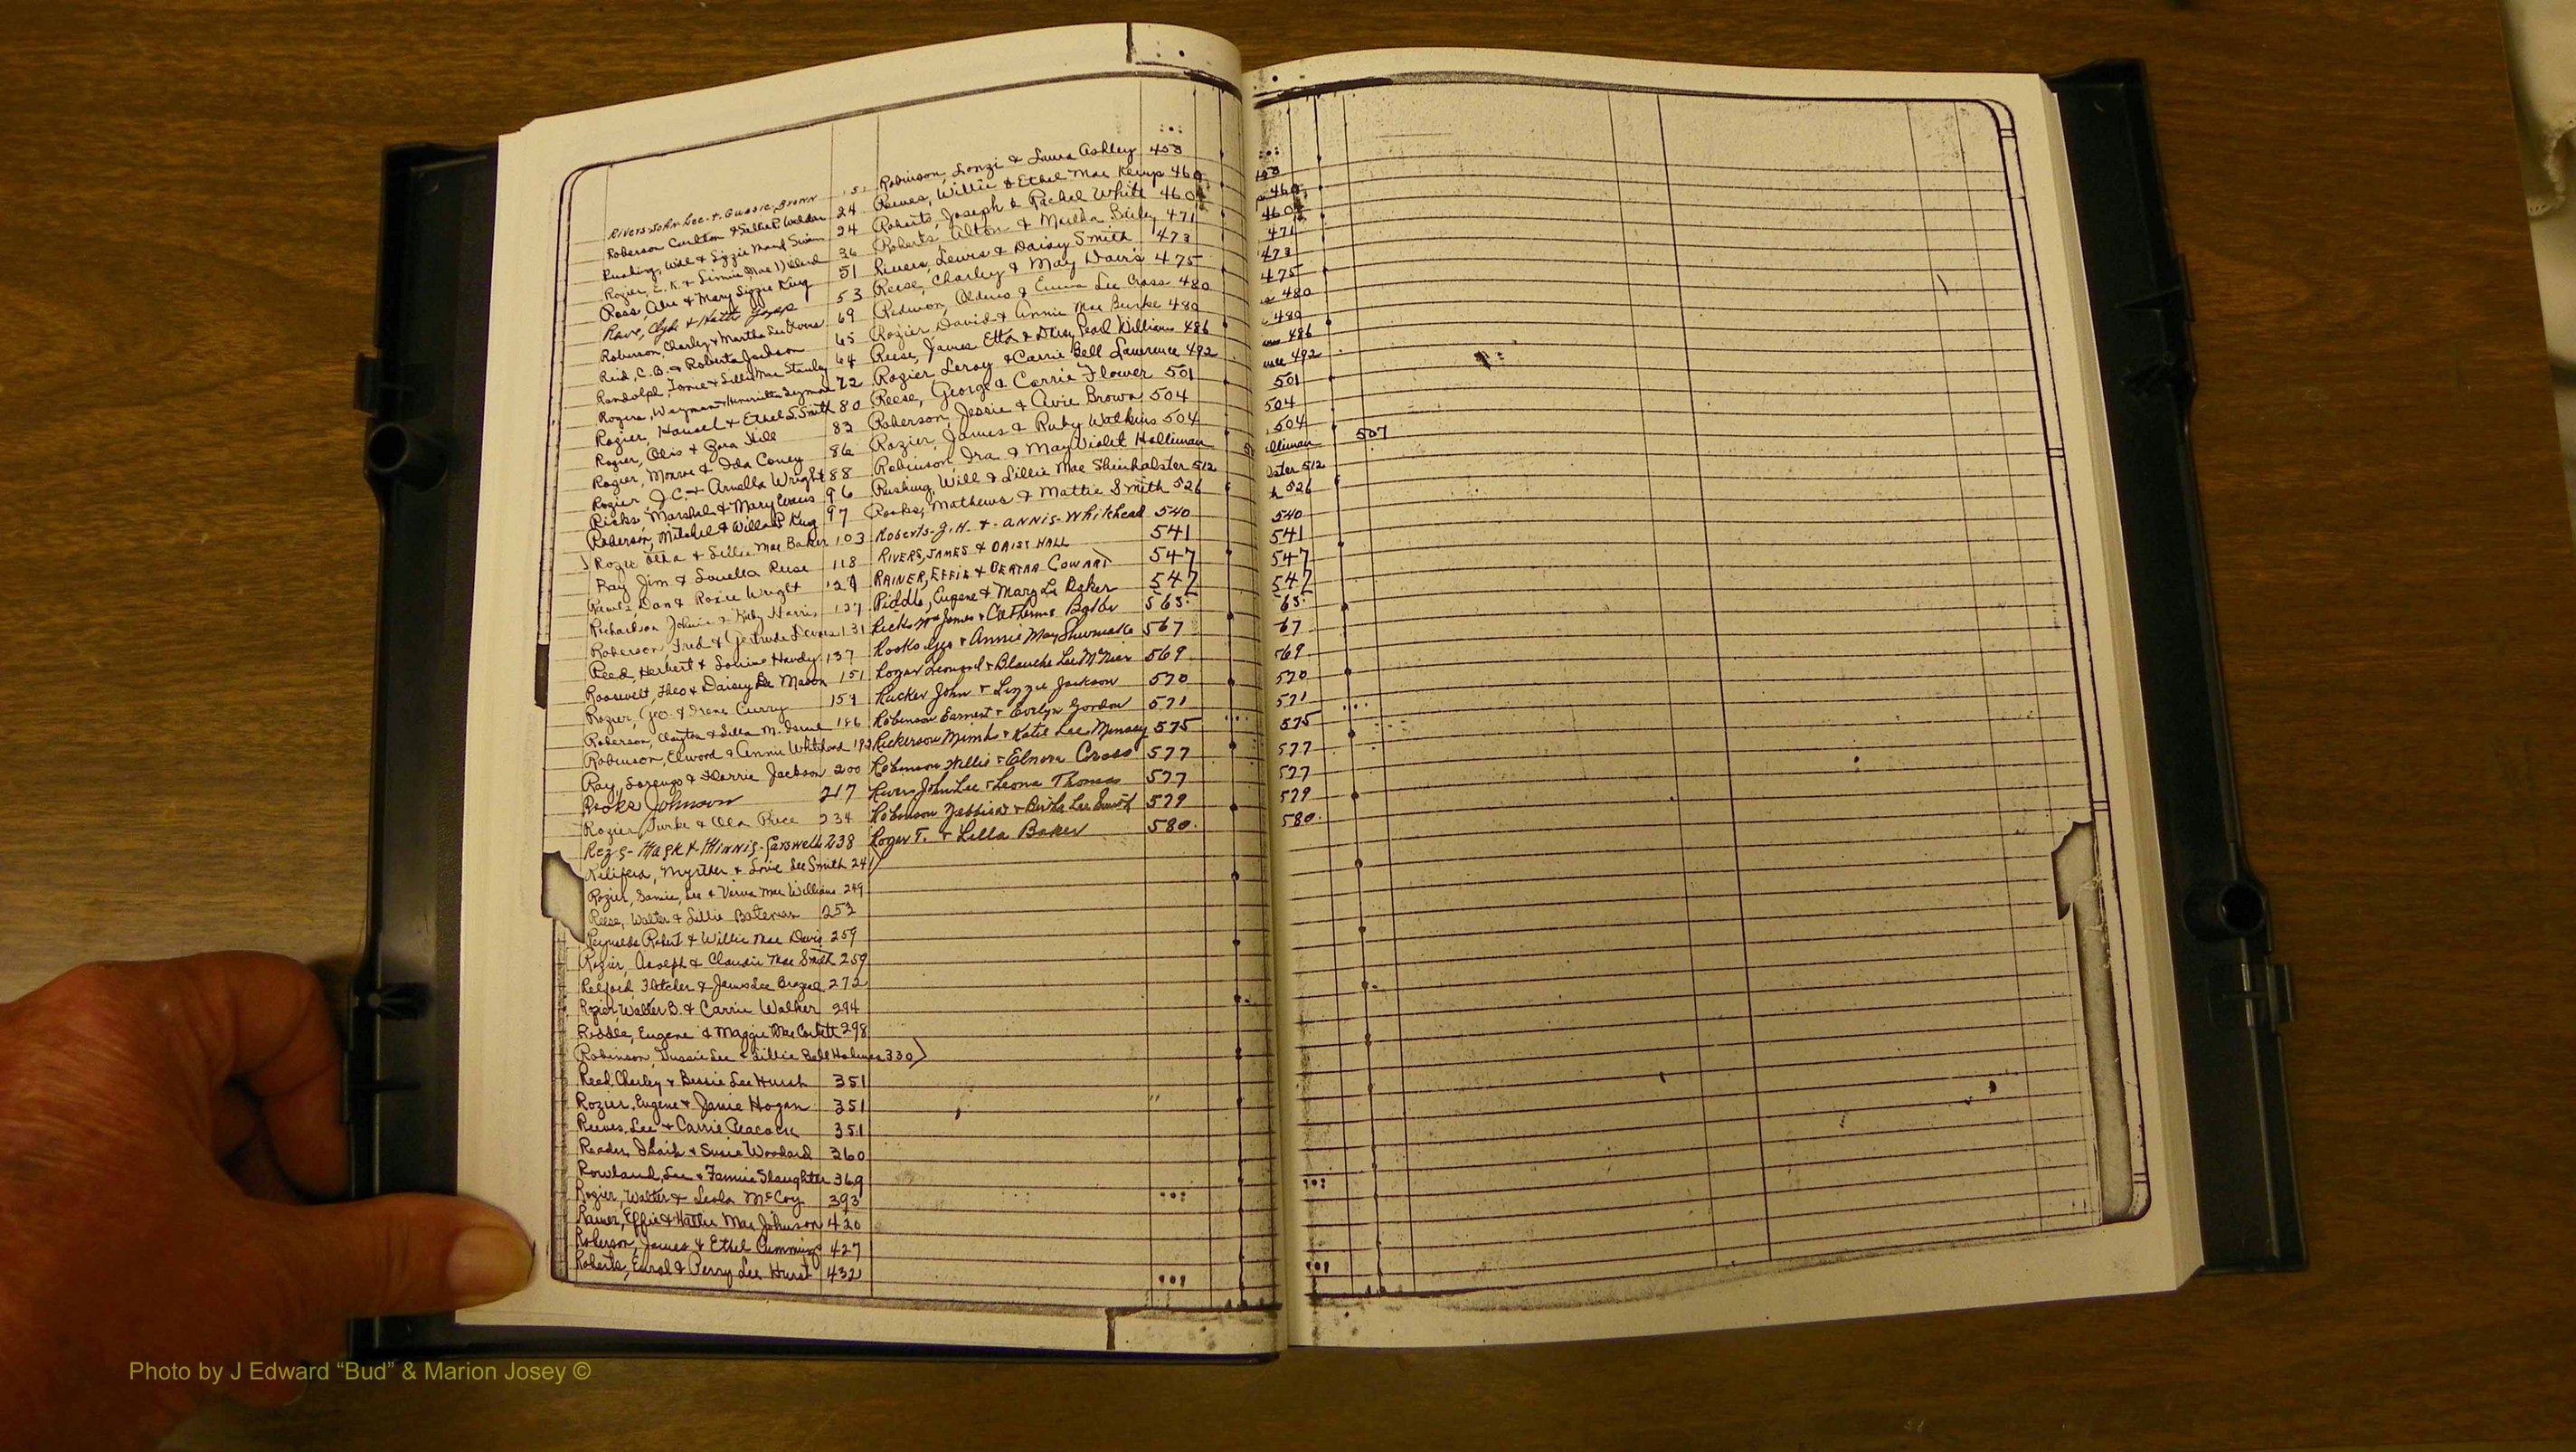 Rivers John Lee & Gussie Brown
Roberson Carlton & Sallie P. Weldon 24
Rushing, Will & Lizzie Mary Swain 24
Rozier, E. K. & Linnie Mae Dillard 36
Ross, Abe & Mary Lizzie King 51
Rave, Clyde & Hattie 53
Robinson, Charley & Martha 69
Reid, C. B. & Roberta Jackson 65
Randolph, Tomie & Lillie Mae Stanley 64
Rogers, Wayman & Henrietta 72
Rozier, Hansel & Ethel S. Smith 80
Rozier, Otis & Zora Hill 83
Rozier, Monroe & Ida Coney 86
Rozier J. C. & Arnella Wright 88
Ricks, Marshal & Mary Evans 96
Roberson, Mitchel & Willa P. King 97
Rozie Otha & Lillie Mae Baker 103
Ray Jim & Louella Reese 118
Dan & Roxie Wright
Richardson Johnie & Ruby Harris 127
Roberson, Fred & Gertrude 131
Reed, Herbert & Louise Hardy 137
Roosevelt, Theo & Daisey Lee Mason 151
Rozier, Geo. & Irene Curry 159
Roberson, Clayton & Lilla M. 186
Robinson, Elwood & Annie Whitehead 192
Ray, Lorenzo & Jackson 200
Rooks Johnson 217
Rozier, Turke & Ola Price 234
& Minnie Carswell 238
Myrther & Lovie Lee Smith 241
Rozier, Samie Lee & Verna Mae Williams 249
Reese, Walter & Lillie Bateman 253
Reynolds Robert & Willie Mae Davis 259
Rozier, Asolph & Claudie Mae Smith 259
Relford, Fletcher & James Lee Brazeal 272
Rozier, Walter B. & Carrie Walker 294
Riddle, Eugene & Maggie Mae Corbett 298
Robinson, Gussie Lee & Lillie Bell Holmes 330
Reed, Charley & Bessie Lee Hurst 351
Rozier, Eugene & Janie Hogan 351
Reeves, Lee & Carrie Peacock 351
& Susie Woodard 360
Rowland, Lee & Fannie Slaughter 369
Rozier, Walter & Leola McCoy 393
Rainer, Effie & Hattie Mae Johnson 420
Roberson, James & Ethel Cummings 427
Roberts, Enrol & Perry Lee Hurst 432
Robinson, Lonzi & Laura Ashley 453
Reeves, Willie & Ethel Mae Kemp 460
Roberts, Joseph & Rachel White 460
Roberts, Alton & Martha 471
Rivers, Lewis & Daisy Smith 473
Reese, Charley & May Davis 475
Redmon, & Emma Lee Cross 480
Rozier David & Annie Mae Burke 480
Reese, James Etta & Daisy Pearl Williams 486
Rozier Leroy & Carrie Bell Lawrence 492
Reese, George & Carrie Flower 501
Roberson, Jessie & Avie Brown 504
Rozier, James & Ruby Watkins 504
Robinson, Ira & May Violet Holliman
Rushing, Will & Lillie Mae Shinholster 512
Rooks, Mathews & Mattie Smith 526
Roberts - J. H. & - Annis - Whitehead 540
RIVERS, JAMES & DAISY HALL 541
RAINER, EFFIE & BERTHA COWART 547
Riddle, Eugene & Mary Lee Baker 547
Ricks Wm James & Catherine 565
Rooks Geo & Annie May Shumake 567
Rogar Leonard & Blanche Lee McNeer 569
Rucker John & Lizzie Jackson 570
Robinson Earnest & Evelyn Gordon 571
Rickerson & Katie Lee 575
Robinson Willis & Elnora Cross 577
Rivers John Lee & Leona Thomas 577
Robinson & Lee Smith 579
Roger T. & Lilla Baker 580
460
460
471
473
475
480
480
486
492
501
504
504
olliman 507
lster 512
526
540
541
547
547
65
67
769
570
571
575
577
577
579
580
Photo by J Edward “Bud” & Marion Josey ©